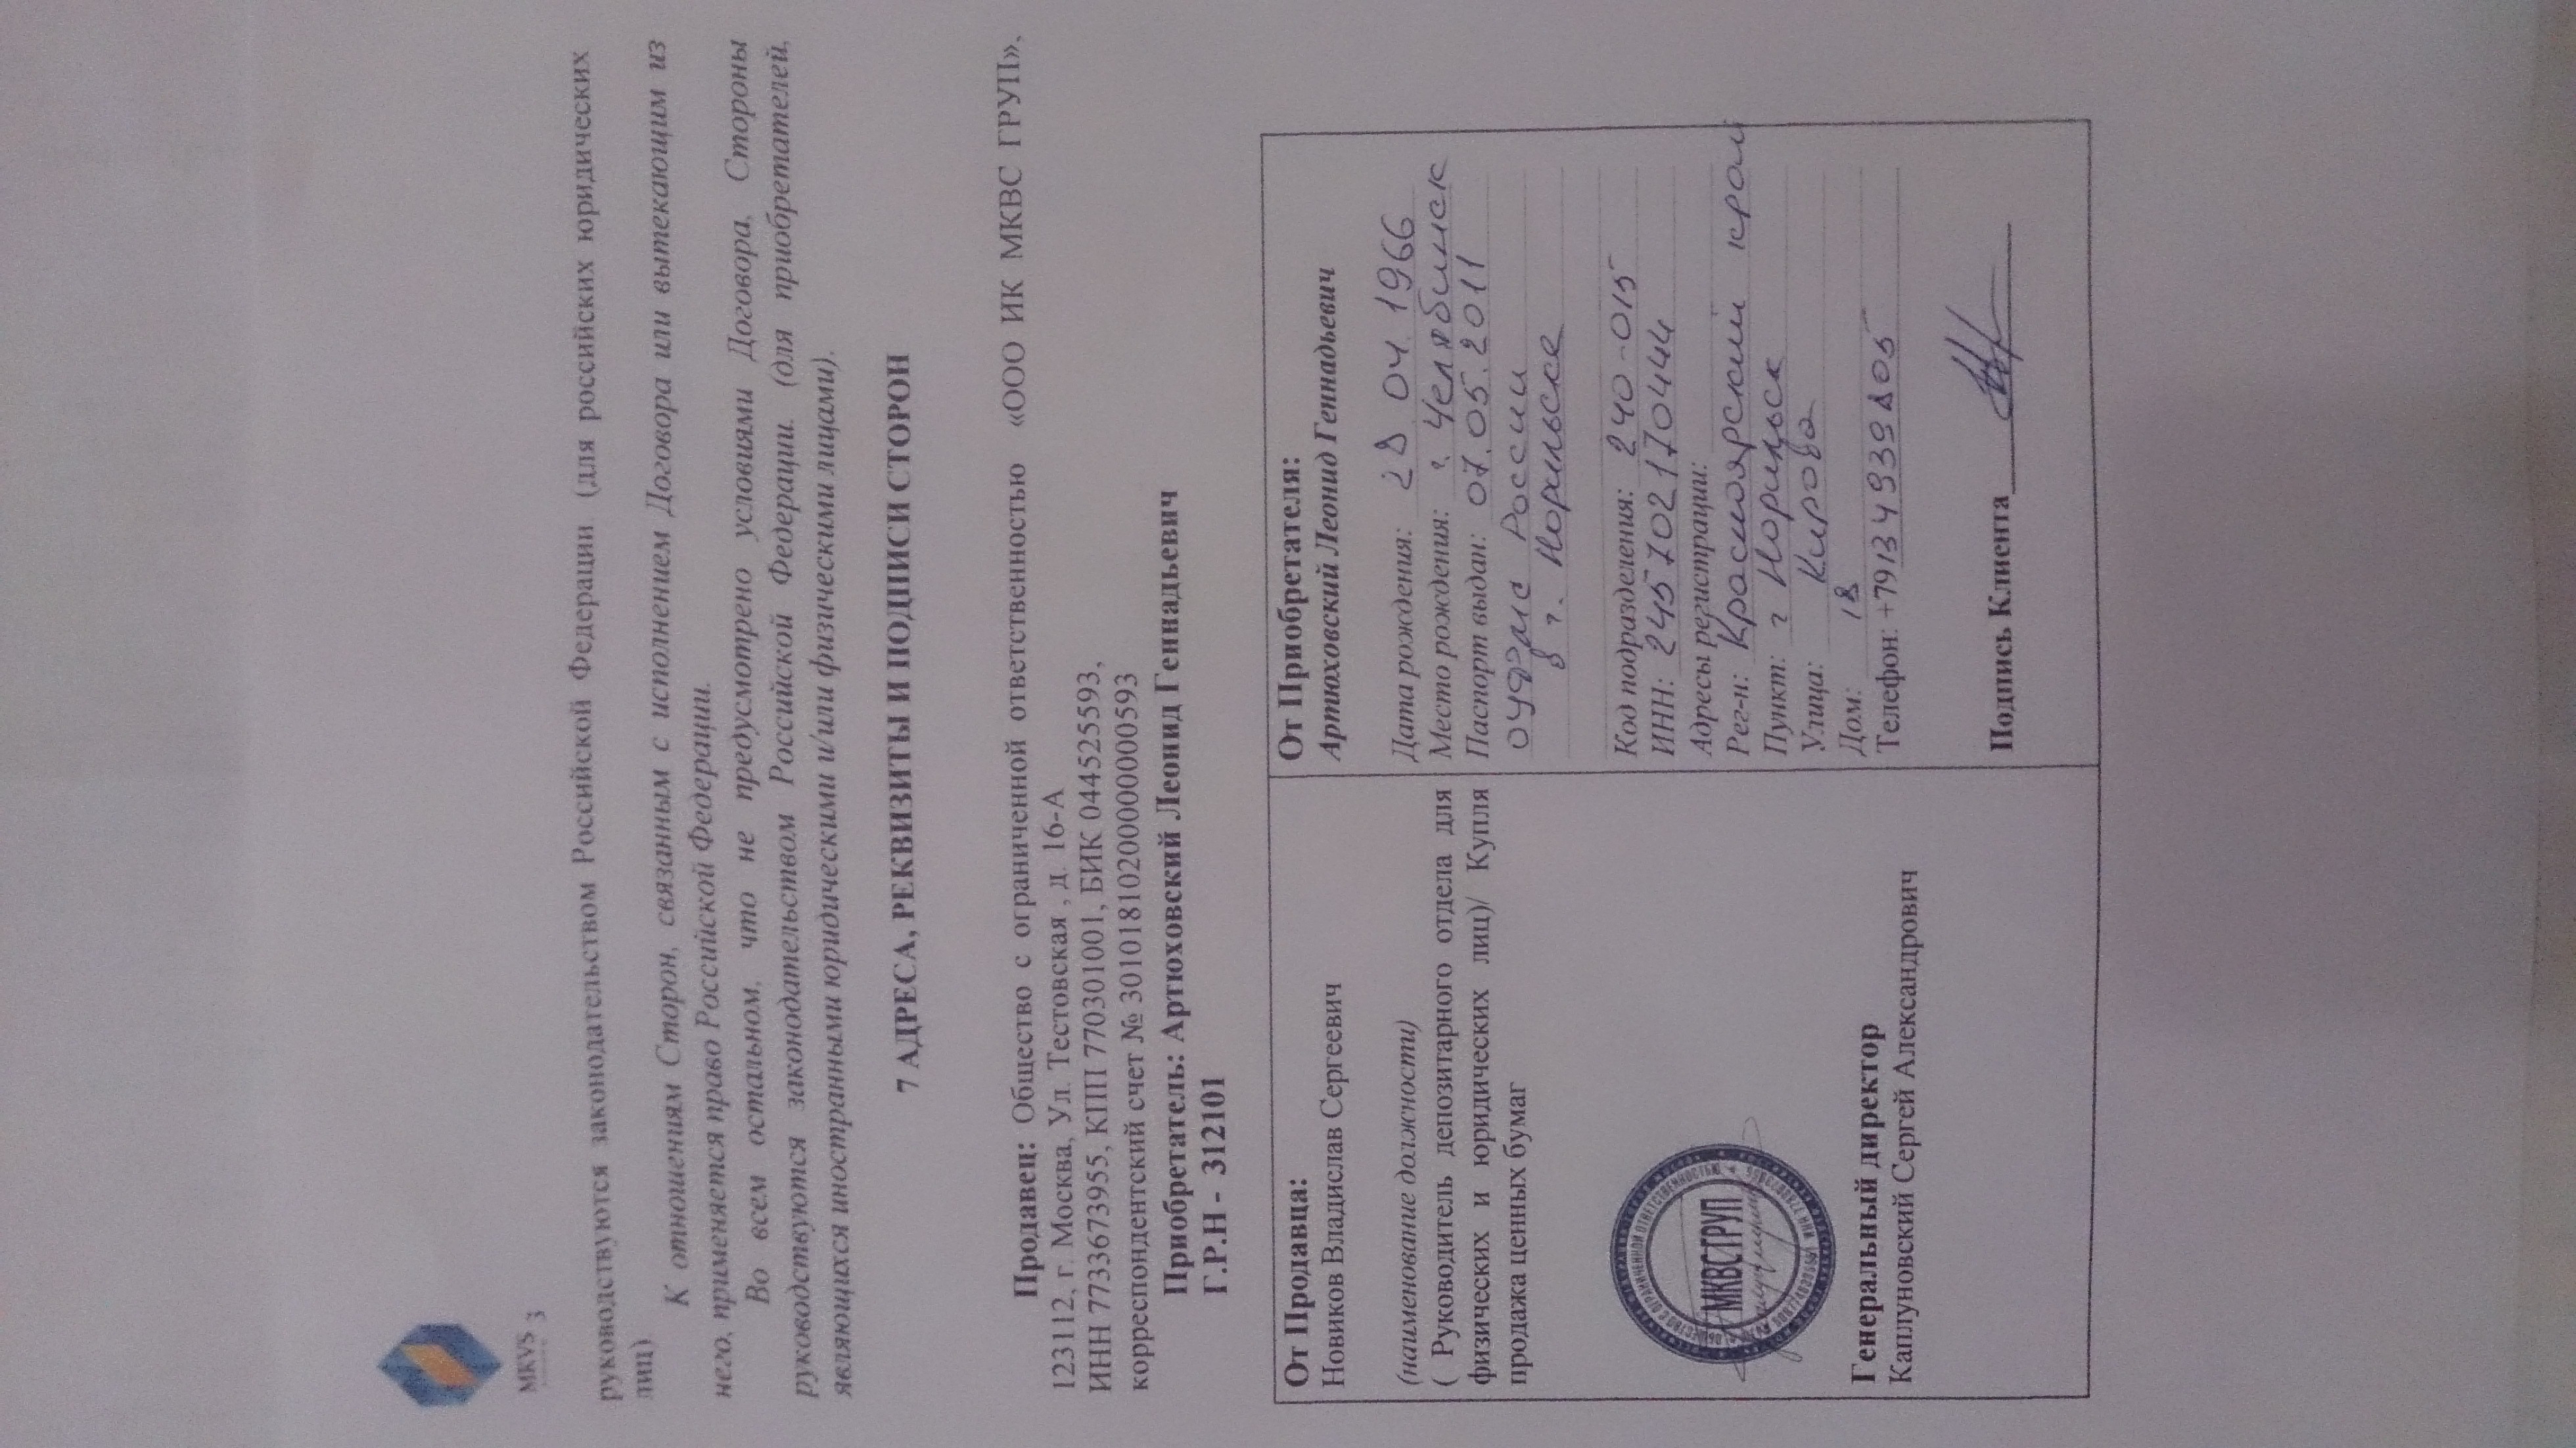 MKVS 3
руководствуются законодательством Российской Федерации. (для российских юридических
лиц)
К отношениям Сторон, связанным с исполнением Договора или вытекающим из
него, применяется право Российской Федерации.
Во всем остальном, что не предусмотрено условиями Договора, Стороны
руководствуются законодательством Российской Федерации. (для приобретателей,
являющихся иностранными юридическими и/или физическими лицами).
7 АДРЕСА, РЕКВИЗИТЫ И ПОДПИСИ СТОРОН
Продавец: Общество с ограниченной ответственностью «ООО ИК МКВС ГРУП»,
123112, г. Москва, Ул. Тестовская , д. 16-А
ИНН 7733673955, КПП 770301001, БИК 044525593,
корреспондентский счет № 30101810200000000593
Приобретатель: Артюховский Леонид Геннадьевич
Г.Р.Н - 312101
От Продавца:
Новиков Владислав Сергеевич
(наименование должности)
( Руководитель депозитарного отдела для
физических и юридических лиц)/ Купля
продажа ценных бумаг
ОБЩЕСТВО С ОГРАНИЧЕННОЙ ОТВЕТСТВЕННОСТЬЮ
МКВС ГРУП
Генеральный директор
Каплуновский Сергей Александрович
От Приобретателя:
Артюховский Леонид Геннадьевич
Дата рождения: 28.04.1966
Место рождения: г. Челябинск
Паспорт выдан: 07.05.2011
ОУФМС России
в г. Норильске
Код подразделения: 240-015
ИНН: 245702170444
Адресы регистрации:
Рег-н: Красноярский край
Пункт: г Норильск
Улица: Кирова
Дом: 18
Телефон: +79134939805
Подпись Клиента